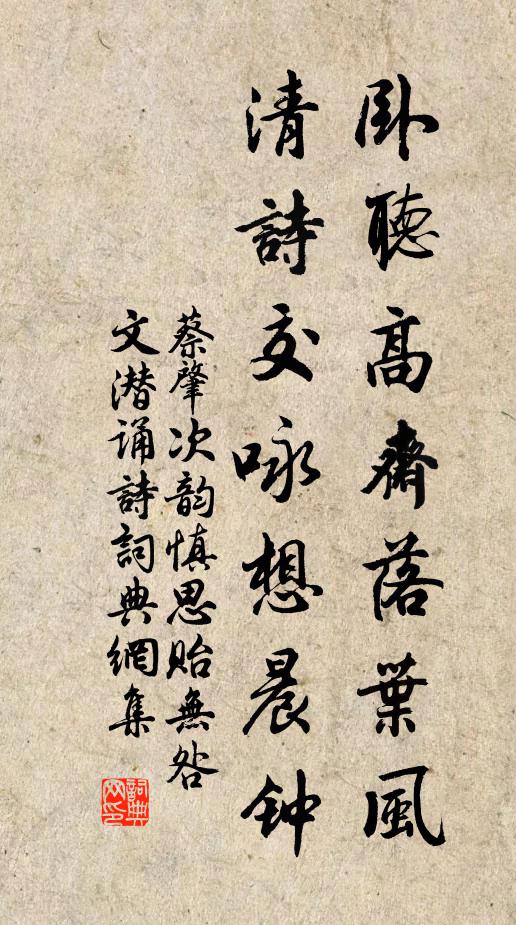 卧聽高齋落葉風
清詩交咏想晨钟
蔡肇次韵慎思貽無咎
文潜诵詩詞典網集
詞典网印